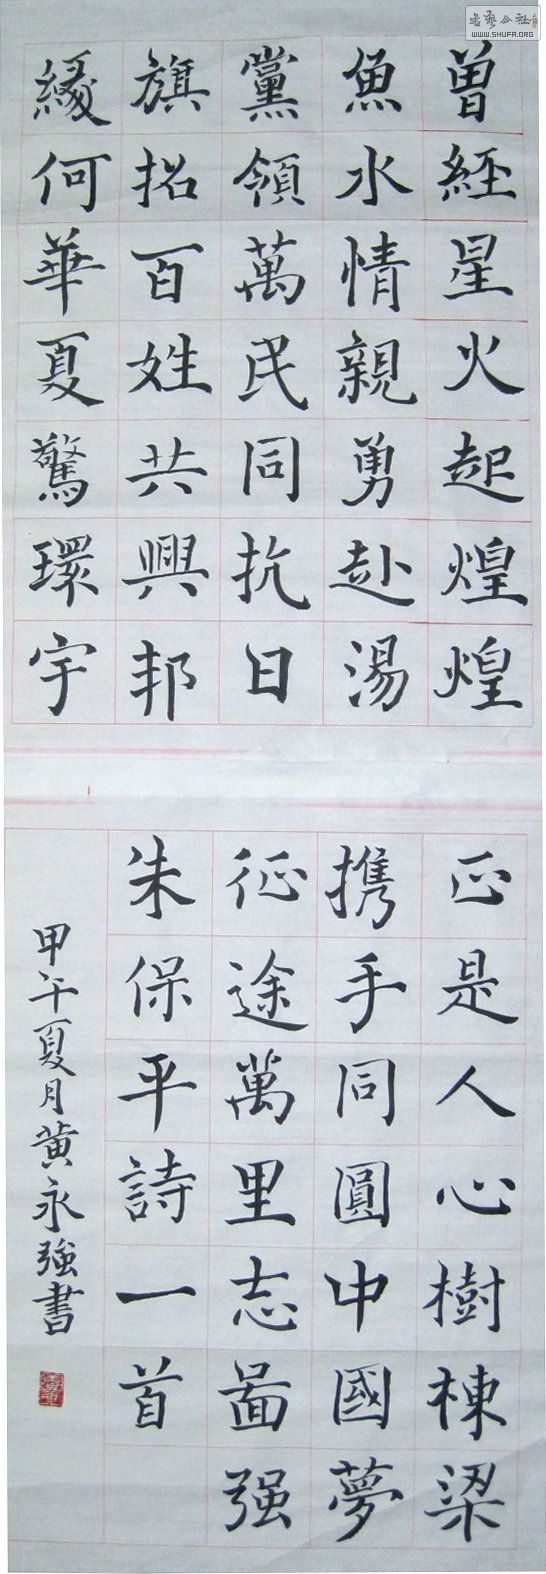 曾經星火起煌煌
魚水情親勇赴湯
黨領萬民同抗日
旗招百姓共興邦
緣何華夏驚環宇
正是人心樹棟梁
攜手同圓中國夢
征途萬里志圖强
朱保平詩一首
甲午夏月黃永强書
书艺公社
WWW.SHUFA.ORG